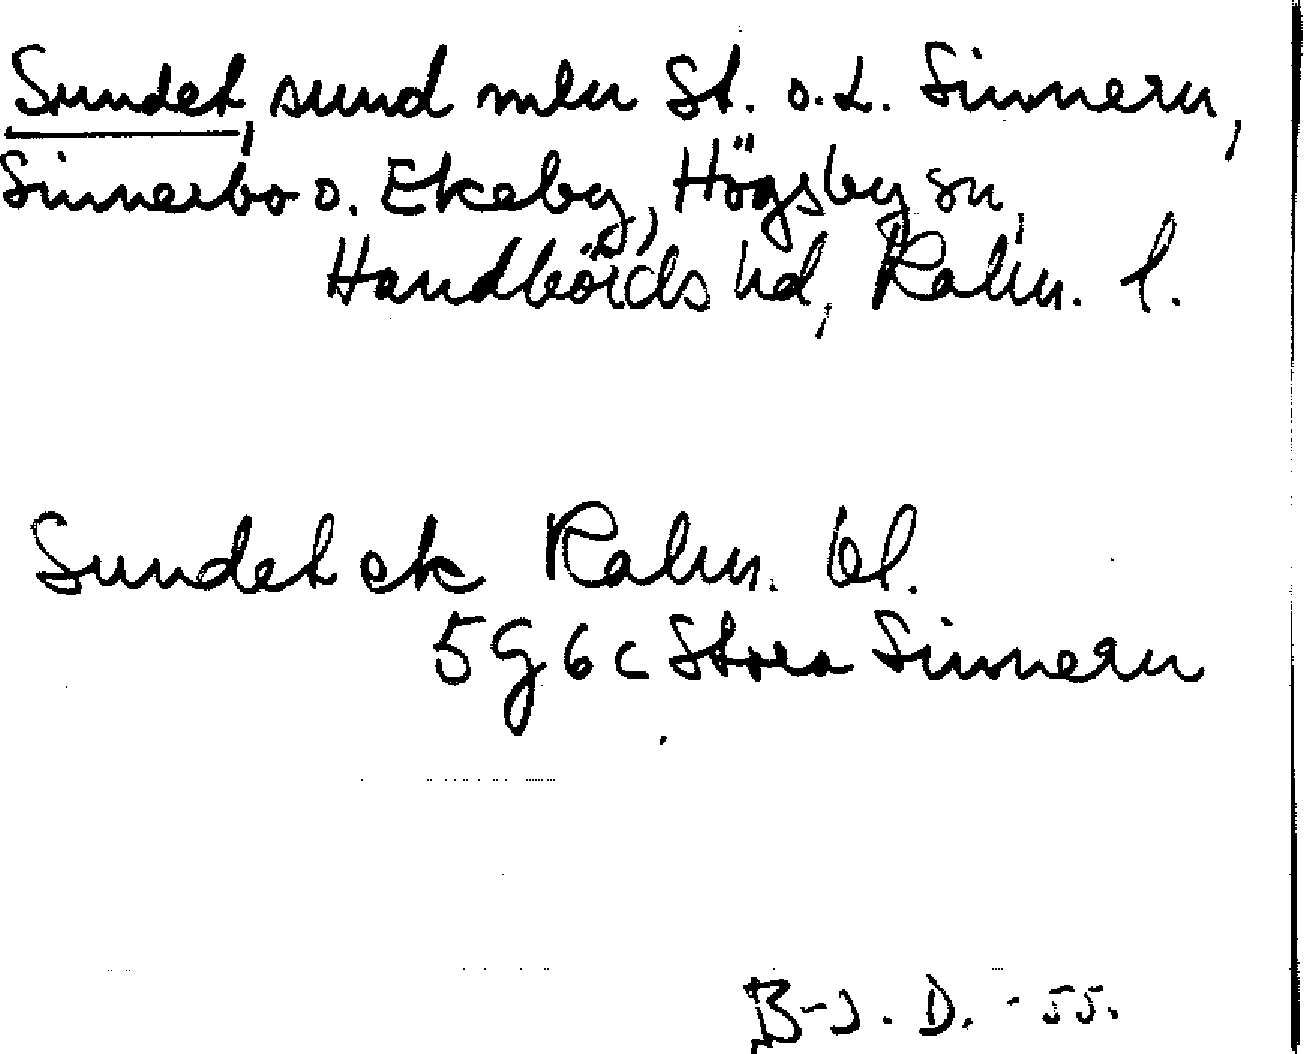 Sundet, sund mln St. o. L. Sinnern,
Sinnerbo o. Ekeby, Högsby sn,
Handbörds hd, Kalm. l.
Sundet ek Kalm. bl.
5 G 6 c Stora Sinnern
B-J. D. -55.